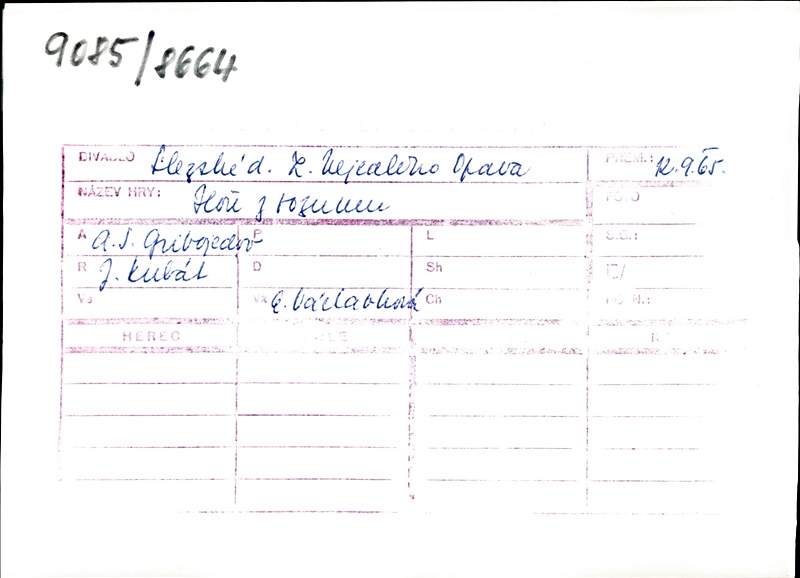 9085/8664
DIVADLO Slezské d. Z. Nejedlého Opava PREM.: 12.9.65.
NÁZEV HRY: Hoře z rozumu FOTO
A A.S. Gribojedov P L S.G.:
R J. Kubát D Sh
Vs Vk E. Václavková Ch POZN.:
HEREC